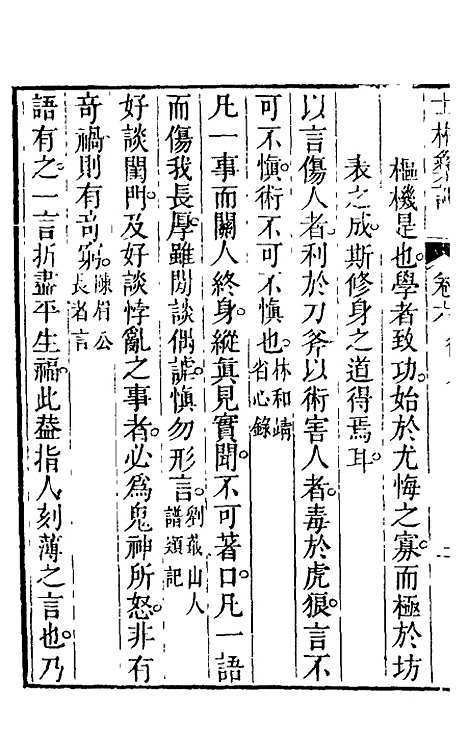 樞機是也。學者致功。始於尤悔之寡。而極於坊
表之成。斯修身之道得焉耳
以言傷人者。利於刀斧。以術害人者。毒於虎狼。言不
可不愼。術不可不愼也。林和靖省心錄
凡一事而關人終身。縱眞見實聞。不可著口。凡一語
而傷我長厚。雖閒談偶謔。愼勿形言。劉蕺山人譜類記
好談閨門。及好談悖亂之事者。必爲鬼神所怒。非有
奇禍。則有奇窮。陳眉公長者言
語有之。一言折盡平生福。此葢指人刻薄之言也。乃